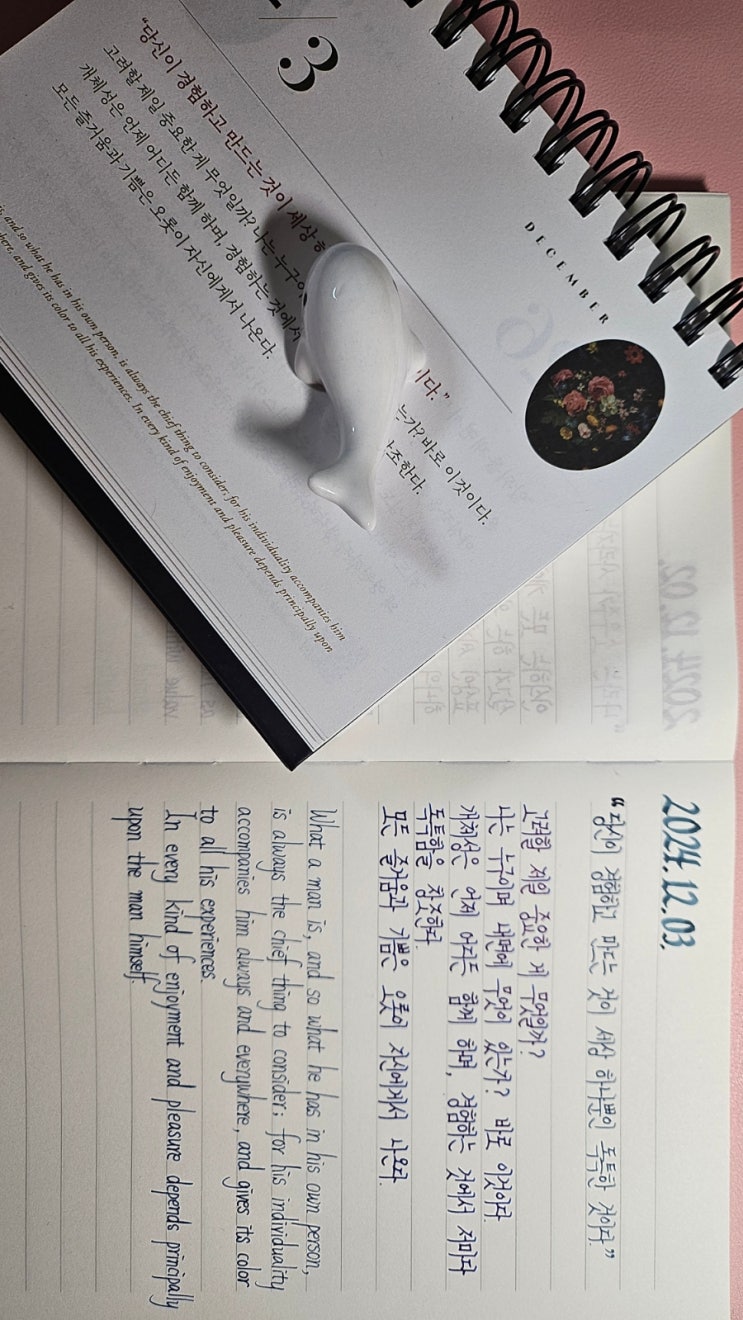 3
DECEMBER
"당신이 경험하고 만드는 것이 세상 이다."
고려할 제일 중요한 게 무엇일까? 나는 누구이 는가? 바로 이것이다.
개체성은 언제 어디든 함께 하며, 경험하는 것에서 조한다.
모든 즐거움과 기쁨은 오롯이 자신에게서 나온다.
is, and so what he has in his own person, is always the chief thing to consider; for his individuality accompanies him
where, and gives its color to all his experiences. In every kind of enjoyment and pleasure depends principally upon
2024.12.02.
2024.12.03.
"당신이 경험하고 만드는 것이 세상 하나뿐인 독특한 것이다."
고려할 제일 중요한 게 무엇일까?
나는 누구이며 내면에 무엇이 있는가? 바로 이것이다.
개체성은 언제 어디든 함께 하며, 경험하는 것에서 저마다
독특함을 창조한다.
모든 즐거움과 기쁨은 오롯이 자신에게서 나온다.
What a man is, and so what he has in his own person,
is always the chief thing to consider; for his individuality
accompanies him always and everywhere, and gives its color
to all his experiences.
In every kind of enjoyment and pleasure depends principally
upon the man himself.